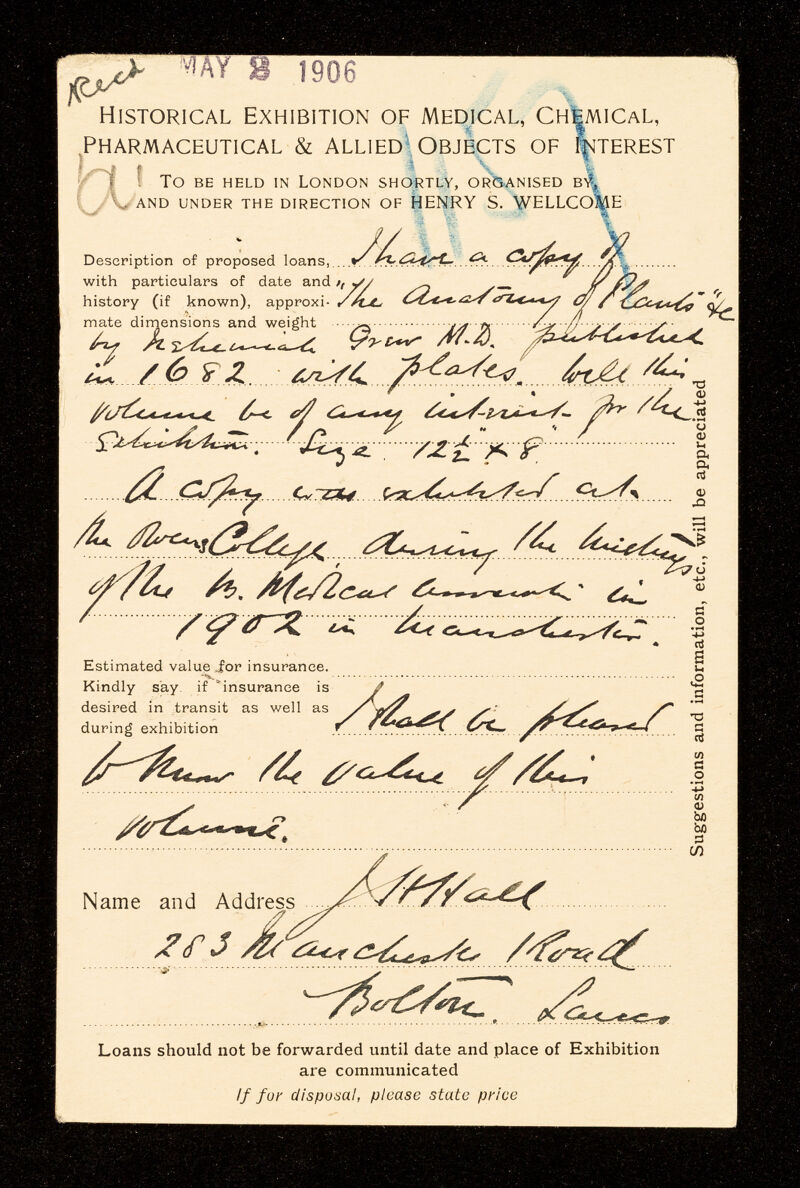 Recd MAY 8 1906
HISTORICAL EXHIBITION OF MEDICAL, CHEMICAL,
PHARMACEUTICAL & ALLIED OBJECTS OF INTEREST
TO BE HELD IN LONDON SHORTLY, ORGANISED BY,
AND UNDER THE DIRECTION OF HENRY S. WELLCOME
Description of proposed loans, I have a copy of
with particulars of date and
history (if known), approxi- "The Anatomy of Plants" &c
mate dimensions and weight
by Nehemiah Grew M.D. published
in 1682 with plates. Will this
volume be of any interest for the
Exhibition. Size 12½" x 8"
A copy was exhibited at
the Owens College during the Meetings
of the B. Medical Association in
1902 in Manchester.
Estimated value for insurance.
Kindly say if insurance is
desired in transit as well as
during exhibition I shall be pleased
to know the value of this
volume.
Name and Address J H Hall
283 Manchester Road
Bolton. Lancs
Loans should not be forwarded until date and place of Exhibition
are communicated
If for disposal, please state price
Suggestions and information, etc., will be appreciated